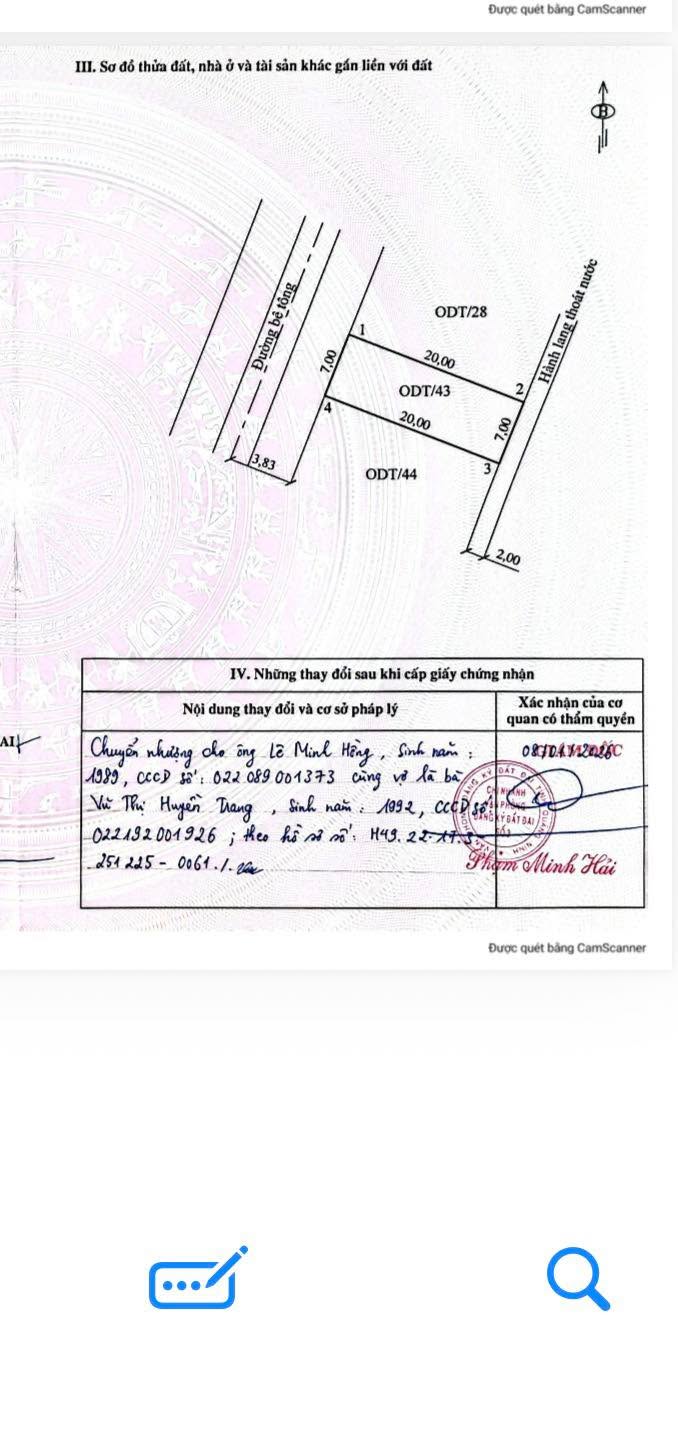 Được quét bằng CamScanner
III. Sơ đồ thửa đất, nhà ở và tài sản khác gắn liền với đất
B
Đường bê tông
Hành lang thoát nước
ODT/28
1
20,00
2
7,00
ODT/43
4
20,00
7,00
3
3,83
ODT/44
2,00
IV. Những thay đổi sau khi cấp giấy chứng nhận
Nội dung thay đổi và cơ sở pháp lý
Xác nhận của cơ quan có thẩm quyền
AI
Chuyển nhượng cho ông Lê Minh Hồng, Sinh năm:
1989, CCCD số: 022089001373 cùng vợ là bà
Vũ Thị Huyền Trang, Sinh năm: 1992, CCCD số:
022192001926; theo hồ sơ số: H49.22.
251225-0061./.
CHI NHÁNH
VĂN PHÒNG
ĐĂNG KÝ ĐẤT ĐAI
Phạm Minh Hải
Được quét bằng CamScanner